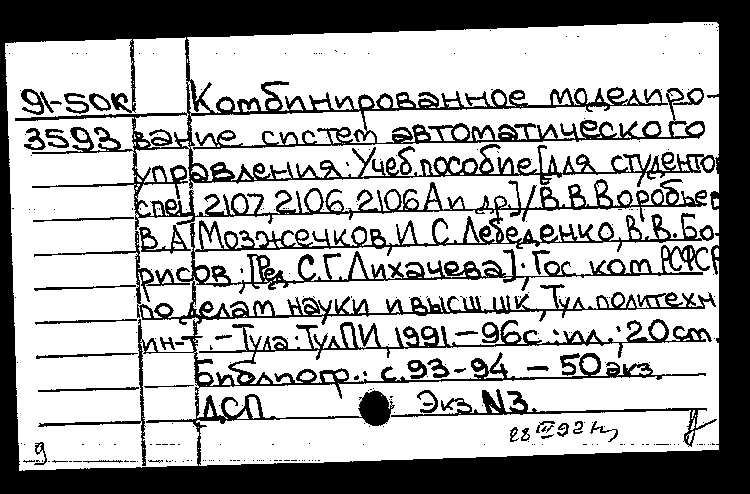 91-50к Комбинированное моделиро-
3593 вание систем автоматического
управления: Учеб. пособие [для студенто
спец. 2107, 2106, 2106А и др.] / В.В. Воробьев
В.А. Мозжечков, И.С. Лебеденко, В.В. Бо-
рисов; [Ред. С.Г. Лихачева]; Гос. ком. РСФСР
по делам науки и высш. шк., Тул. политехн
ин-т. – Тула: ТулПИ, 1991. – 96с.: ил.; 20 см.
Библиогр.: с. 93-94. – 50 экз.
ДСП. Экз. N3.
28 III 92
9